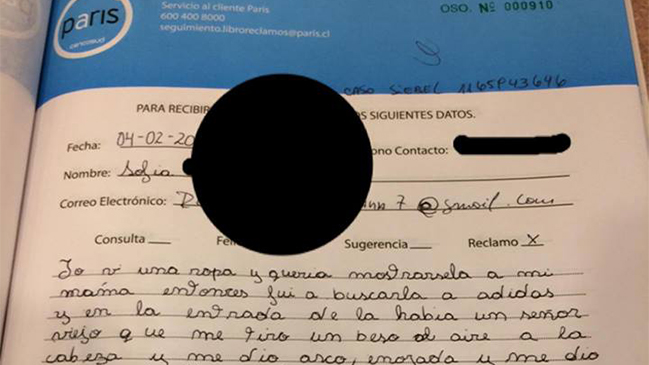 paris
cencosud
Servicio al cliente Paris
600 400 8000
seguimiento.libroreclamos@paris.cl
OSO. Nº 000910
CASO SIEBEL
PARA RECIBIR OS SIGUIENTES DATOS.
Fecha: 04-02-20 ono Contacto:
Nombre: Sofia
Correo Electrónico: 7@gmail.com
Consulta Feli Sugerencia Reclamo X
Yo vi una ropa y queria mostrarsela a mi
mama entonces fui a buscarla a adidas
y en la entrada de la habia un señor
viejo que me tiro un beso al aire a la
cabeza y me dio asco, enojada y me dio